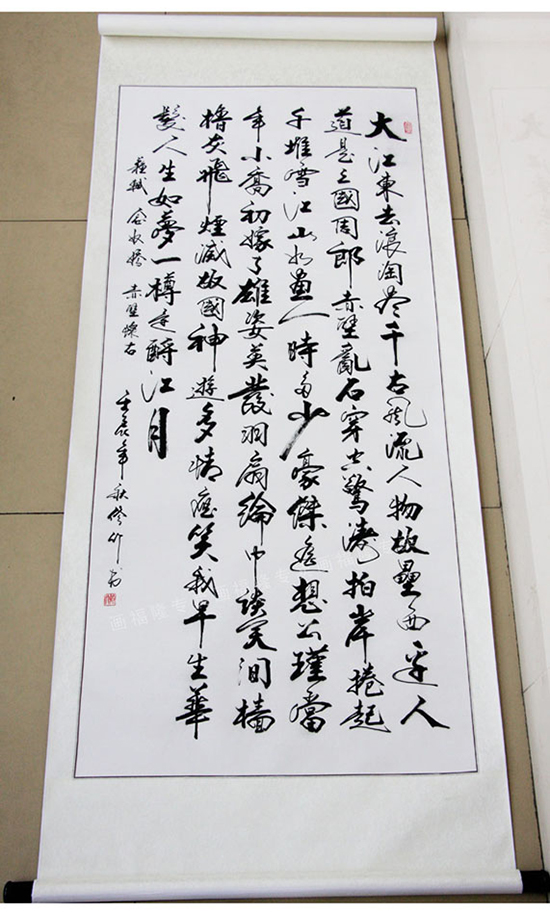 大江東去浪淘盡千古風流人物故壘西邊人
道是三國周郎赤壁亂石穿空驚濤拍岸捲起
千堆雪江山如畫一時多少豪傑遙想公瑾當
年小喬初嫁了雄姿英發羽扇綸巾談笑間檣
櫓灰飛煙滅故國神遊多情應笑我早生華
髮人生如夢一樽還酹江月
蘇軾 念奴嬌 赤壁懷古
壬辰年秋修竹